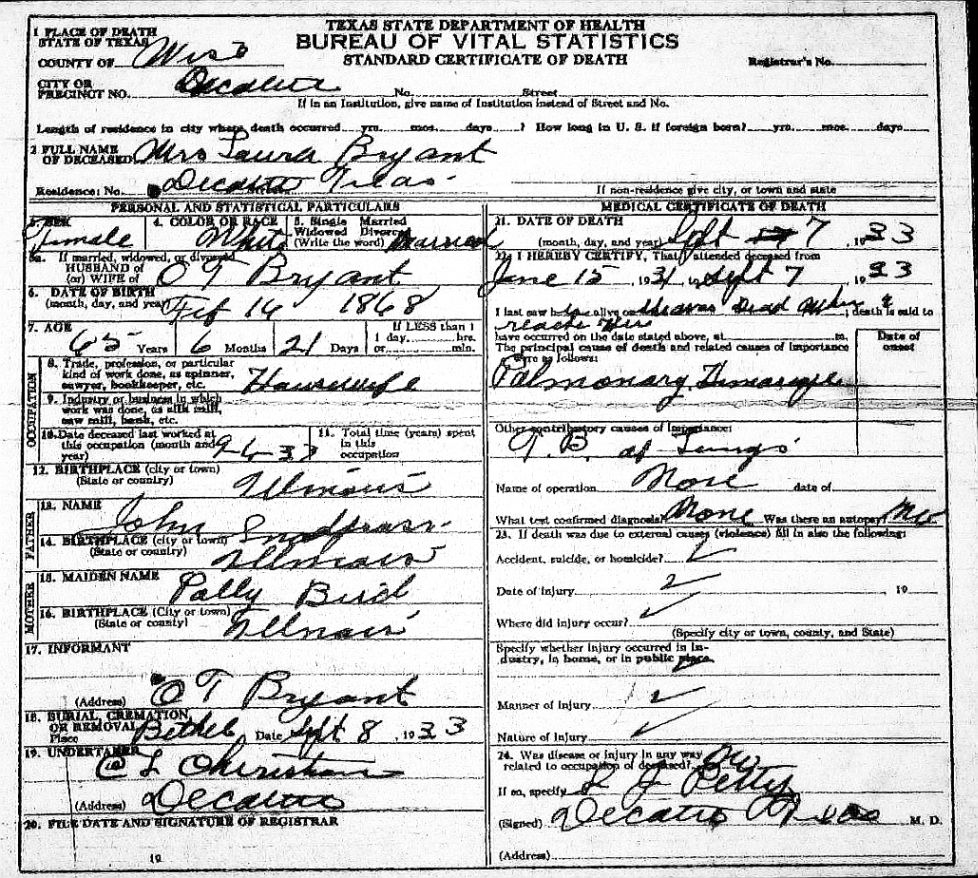 TEXAS STATE DEPARTMENT OF HEALTH
BUREAU OF VITAL STATISTICS
STANDARD CERTIFICATE OF DEATH
1 PLACE OF DEATH
STATE OF TEXAS
COUNTY OF Wise
Registrar's No.
CITY OR
PRECINCT NO. Decatur No. Street
If in an Institution, give name of Institution instead of Street and No.
Length of residence in city where death occurred yrs. mos. days ? How long in U. S. if foreign born? yrs. mos. days
2 FULL NAME
OF DECEASED Mrs Laura Bryant
Residence: No. Decatur Texas
If non-residence give city, or town and state
PERSONAL AND STATISTICAL PARTICULARS
3. SEX Female
4. COLOR OR RACE White
5. Single Married
Widowed Divorced
(Write the word) Married
5a. If married, widowed, or divorced
HUSBAND of
(or) WIFE of O T Bryant
6. DATE OF BIRTH
(month, day, and year) Feb 16 1868
7. AGE
65 Years 6 Months 21 Days
If LESS than 1
1 day hrs.
or min.
OCCUPATION
8. Trade, profession, or particular
kind of work done, as spinner,
sawyer, bookkeeper, etc. Housewife
9. Industry or business in which
work was done, as silk mill,
saw mill, bank, etc.
10. Date deceased last worked at
this occupation (month and
year) 9-6-33
11. Total time (years) spent
in this
occupation
12. BIRTHPLACE (city or town)
(State or country) Illinois
FATHER
13. NAME John
14. BIRTHPLACE (city or town)
(State or country) Illinois
MOTHER
15. MAIDEN NAME Polly Bird
16. BIRTHPLACE (City or town)
(State or country) Illinois
17. INFORMANT
(Address) O T Bryant
18. BURIAL, CREMATION,
OR REMOVAL
Place Bethel Date Sept 8, 1933
19. UNDERTAKER
C L Christian
(Address) Decatur
20. FILE DATE AND SIGNATURE OF REGISTRAR
19
MEDICAL CERTIFICATE OF DEATH
21. DATE OF DEATH
(month, day, and year) Sept 7, 1933
22. I HEREBY CERTIFY, That I attended deceased from
June 15, 1931, Sept 7 1933
I last saw h alive on She was Dead when I; death is said to
reached Her
have occurred on the date stated above, at m.
The principal cause of death and related causes of importance
were as follows:
Date of
onset
Palmonary
Other contributory causes of importance:
T. B. of Lungs
Name of operation None date of
What test confirmed diagnosis? None Was there an autopsy? No
23. If death was due to external causes (violence) fill in also the following:
Accident, suicide, or homicide?
Date of injury , 19
Where did injury occur?
(Specify city or town, county, and State)
Specify whether injury occurred in In-
dustry, in home, or in public place.
Manner of injury
Nature of injury
24. Was disease or injury in any way
related to occupation of deceased? No
If so, specify L J Petty
(Signed) Decatur Texas M. D.
(Address)